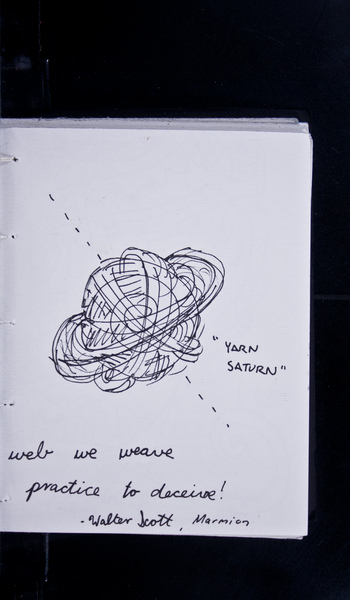 "YARN
SATURN"
web we weave
practice to deceive!
- Walter Scott, Marmion